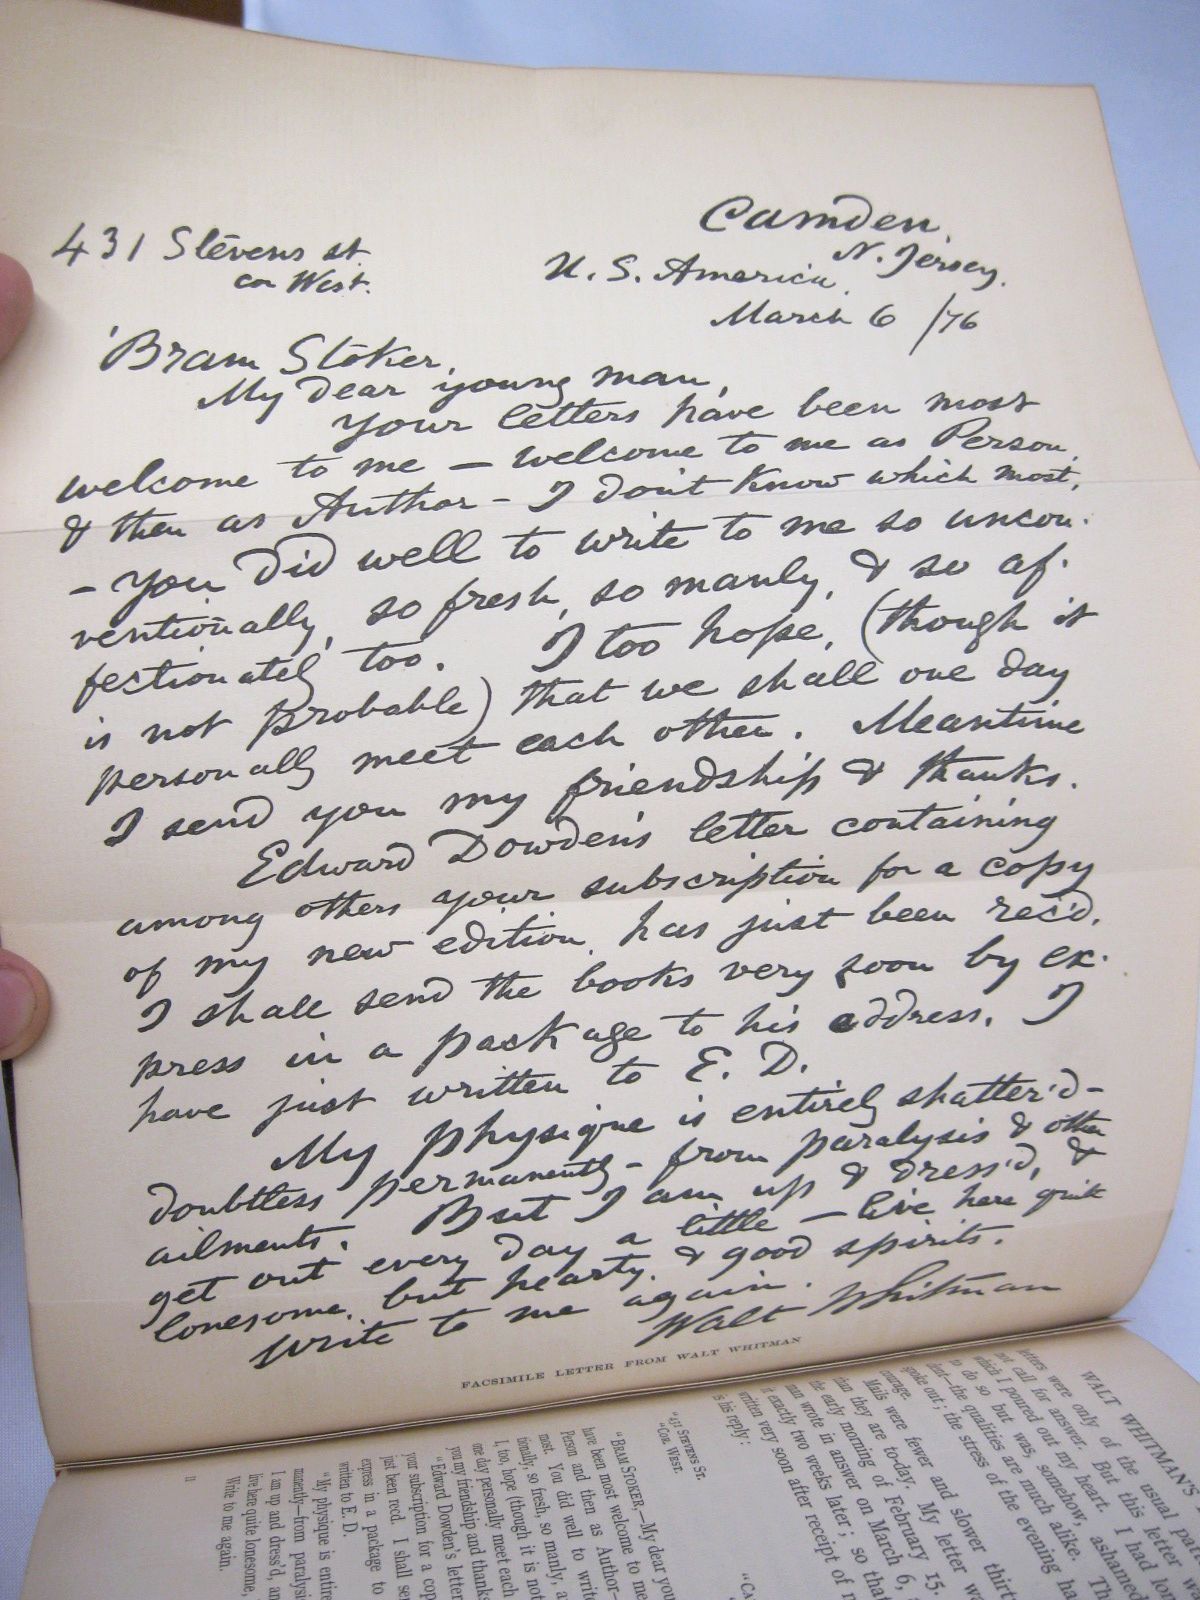 431 Stevens st
cor West.
Camden,
N. Jersey.
U. S. America.
March 6 /76
Bram Stoker,
My dear young man,
Your letters have been most
welcome to me — welcome to me as Person,
& then as Author - I don't know which most,
- You did well to write to me so uncon-
ventionally, so fresh, so manly, & so af-
fectionately too. I too hope, (though it
is not probable) that we shall one day
personally meet each other. Meantime
I send you my friendship & thanks.
Edward Dowden's letter containing
among others your subscription for a copy
of my new edition, has just been rec'd.
I shall send the books very soon by ex-
press in a package to his address. I
have just written to E. D.
My physique is entirely shatter'd -
doubtless permanently - from paralysis & other
ailments. But I am up & dress'd, &
get out every day a little — live here quite
lonesome, but hearty, & good spirits.
Write to me again.
Walt Whitman
FACSIMILE LETTER FROM WALT WHITMAN
WALT WHITMAN'S
letters were only of the usual
not call for answer. But this letter
which I poured out my heart. I had
to do so but was, somehow, ashamed
dent—the qualities are much alike.
spoke out; the stress of the evening
courage.
Mails were fewer and slower
than they are to-day. My letter
the early morning of February 15.
man wrote in answer on March 6,
it exactly two weeks later; so that
written very soon after receipt of
is his reply:
"431 STEVENS ST.
"COR. WEST.
"BRAM STOKER,—My dear
have been most welcome to me
Person and then as Author—
most. You did well to write
tionally, so fresh, so manly,
I, too, hope (though it is not
one day personally meet each
you my friendship and thanks
"Edward Dowden's letter
your subscription for a
just been recd. I shall
express in a package to
written to E. D.
"My physique is
manently—from
I am up and dress'd,
live here quite lonesome,
Write to me again.
11